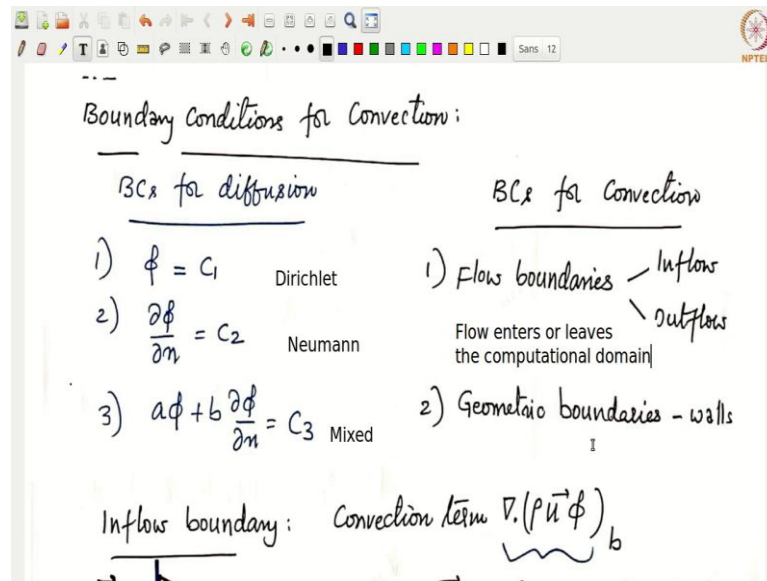 Sans 12
NPTEL
Boundary Conditions for Convection:
BCs for diffusion
1) ϕ = C₁ Dirichlet
2) ∂ϕ/∂n = C₂ Neumann
3) aϕ + b ∂ϕ/∂n = C₃ Mixed
BCs for Convection
1) Flow boundaries Inflow
Outflow
Flow enters or leaves
the computational domain
2) Geometric boundaries - walls
Inflow boundary: Convection term ∇.(ρu⃗ϕ)b